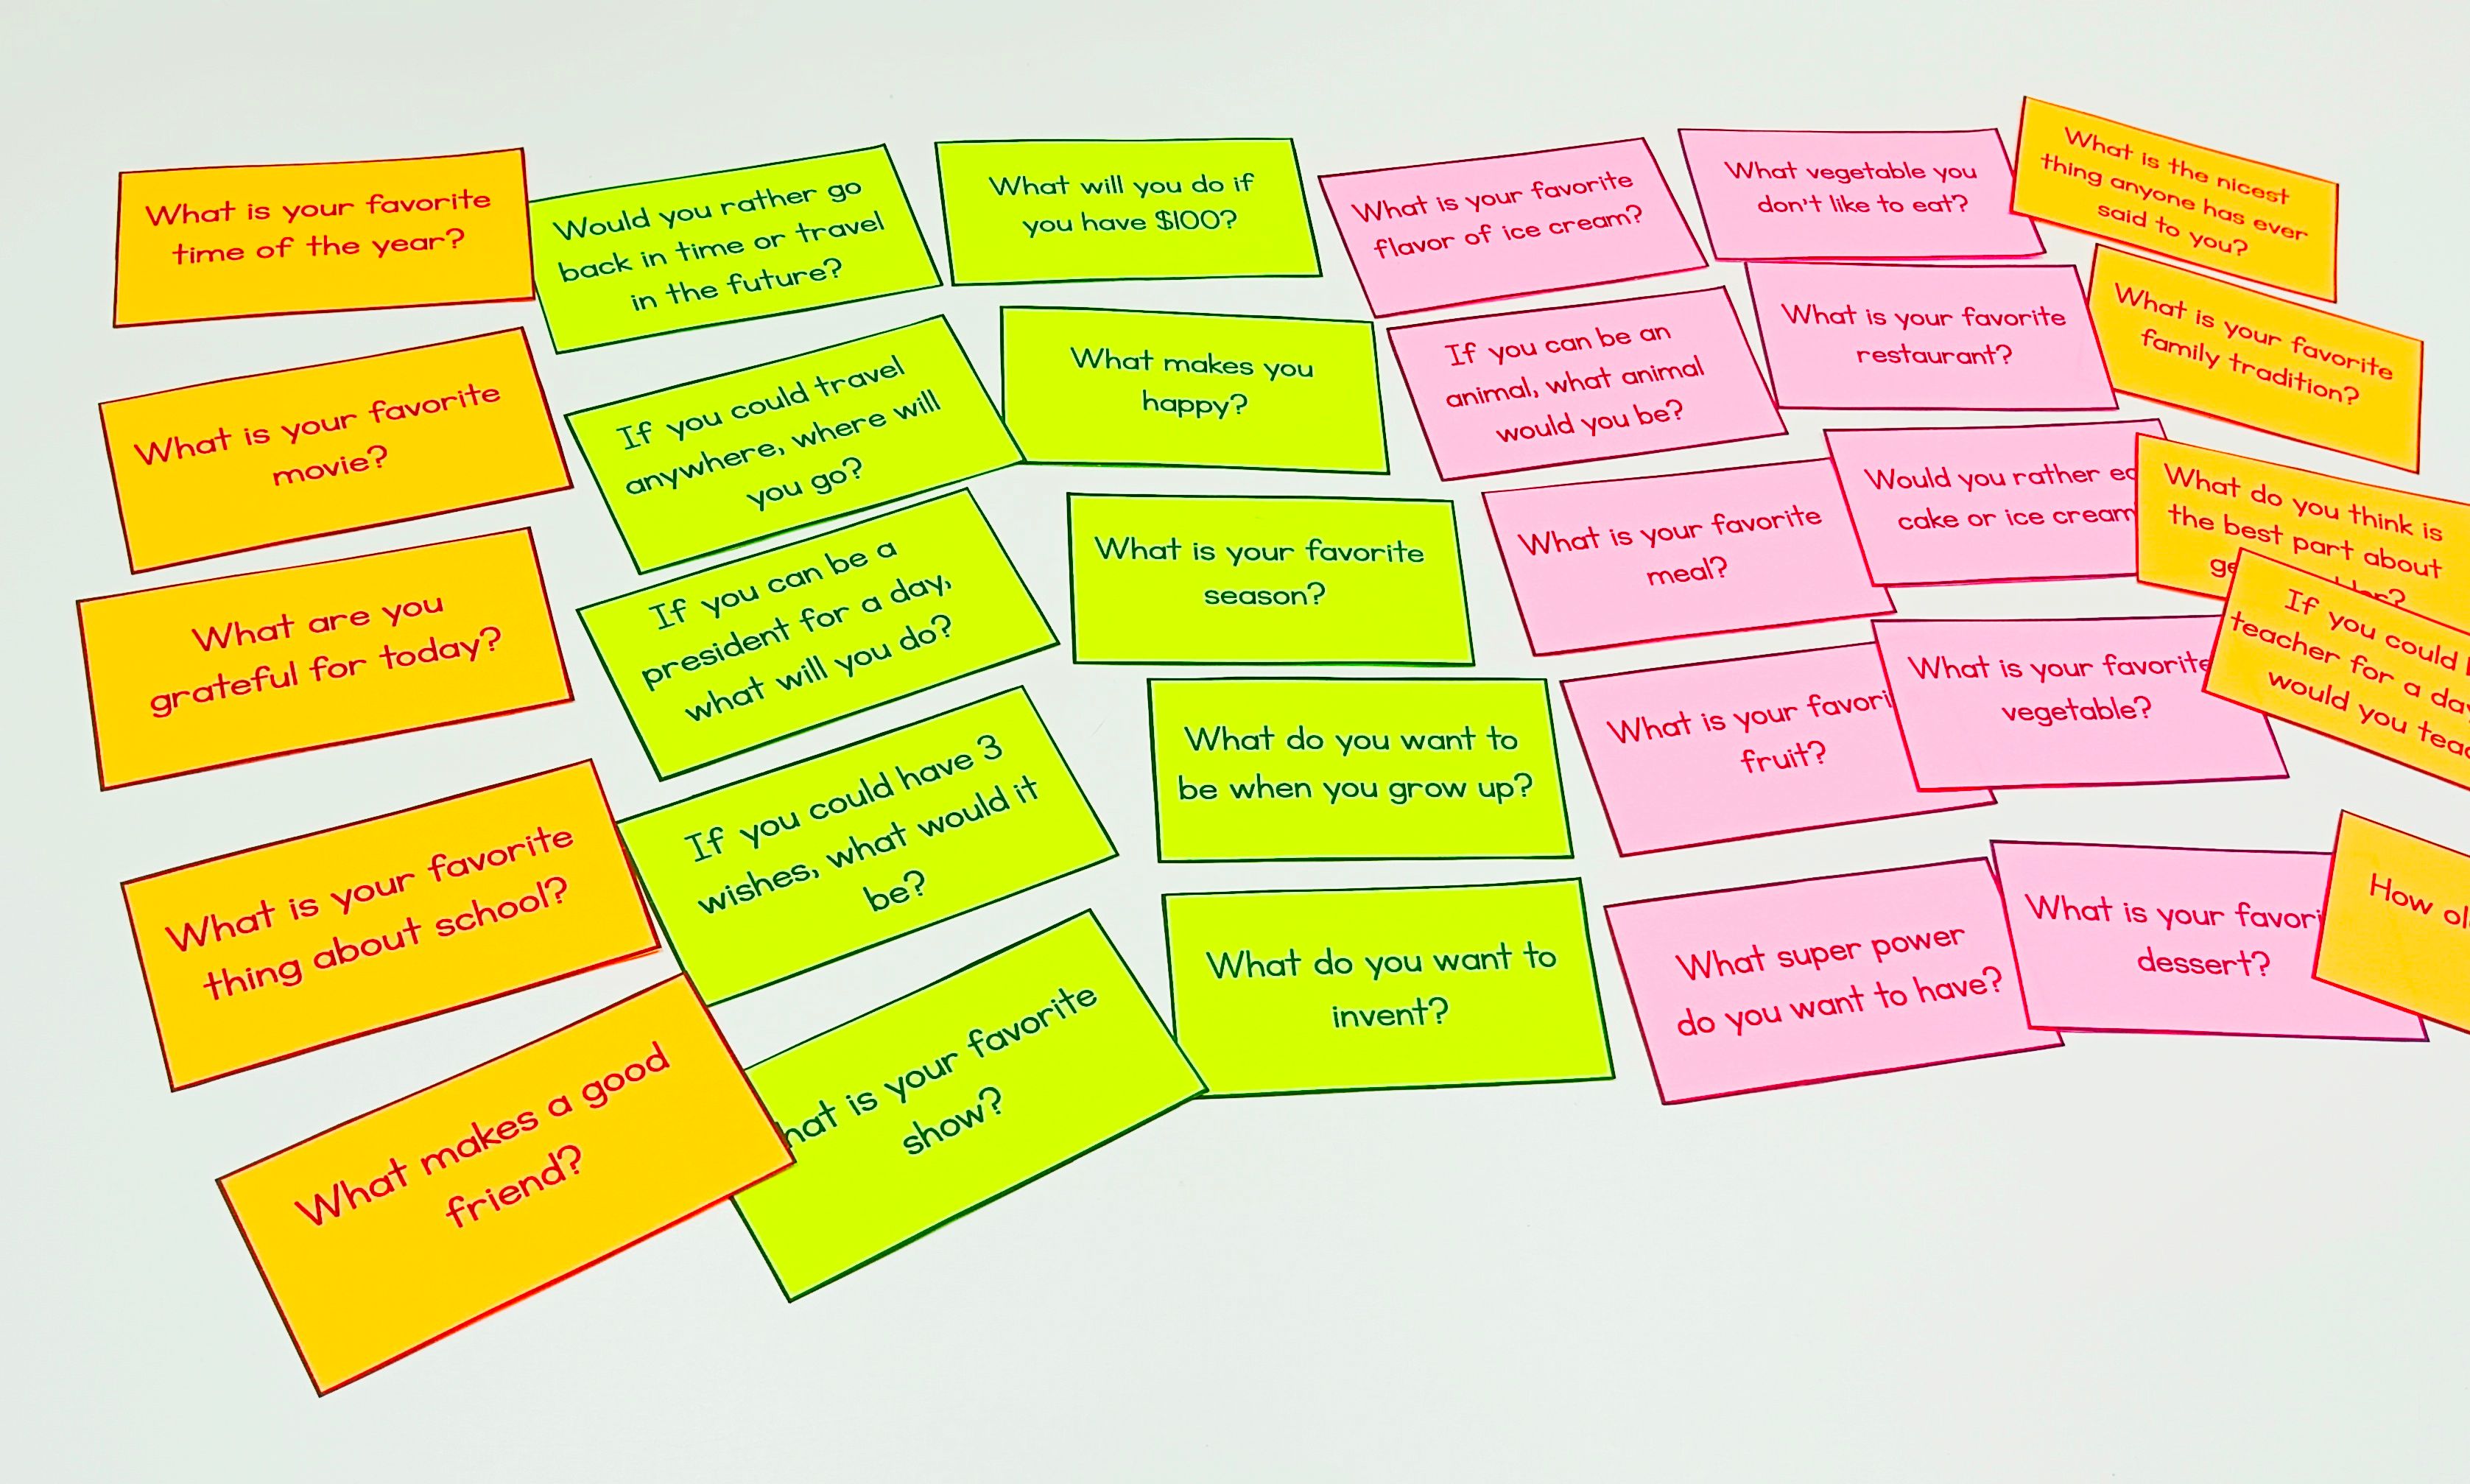 What is your favorite
time of the year?
What is your favorite
movie?
What are you
grateful for today?
What is your favorite
thing about school?
What makes a good
friend?
Would you rather go
back in time or travel
in the future?
If you could travel
anywhere, where will
you go?
If you can be a
president for a day,
what will you do?
If you could have 3
wishes, what would it
be?
is your favorite
show?
What will you do if
you have $100?
What makes you
happy?
What is your favorite
season?
What do you want to
be when you grow up?
What do you want to
invent?
What is your favorite
flavor of ice cream?
If you can be an
animal, what animal
would you be?
What is your favorite
meal?
What is your
fruit?
What super power
do you want to have?
What vegetable you
don't like to eat?
What is your favorite
restaurant?
Would you rather
cake or ice cream
What is your favorite
vegetable?
What is your
dessert?
What is the nicest
thing anyone has ever
said to you?
What is your favorite
family tradition?
What do you think is
the best part about
If you could
teacher for a
would you
How